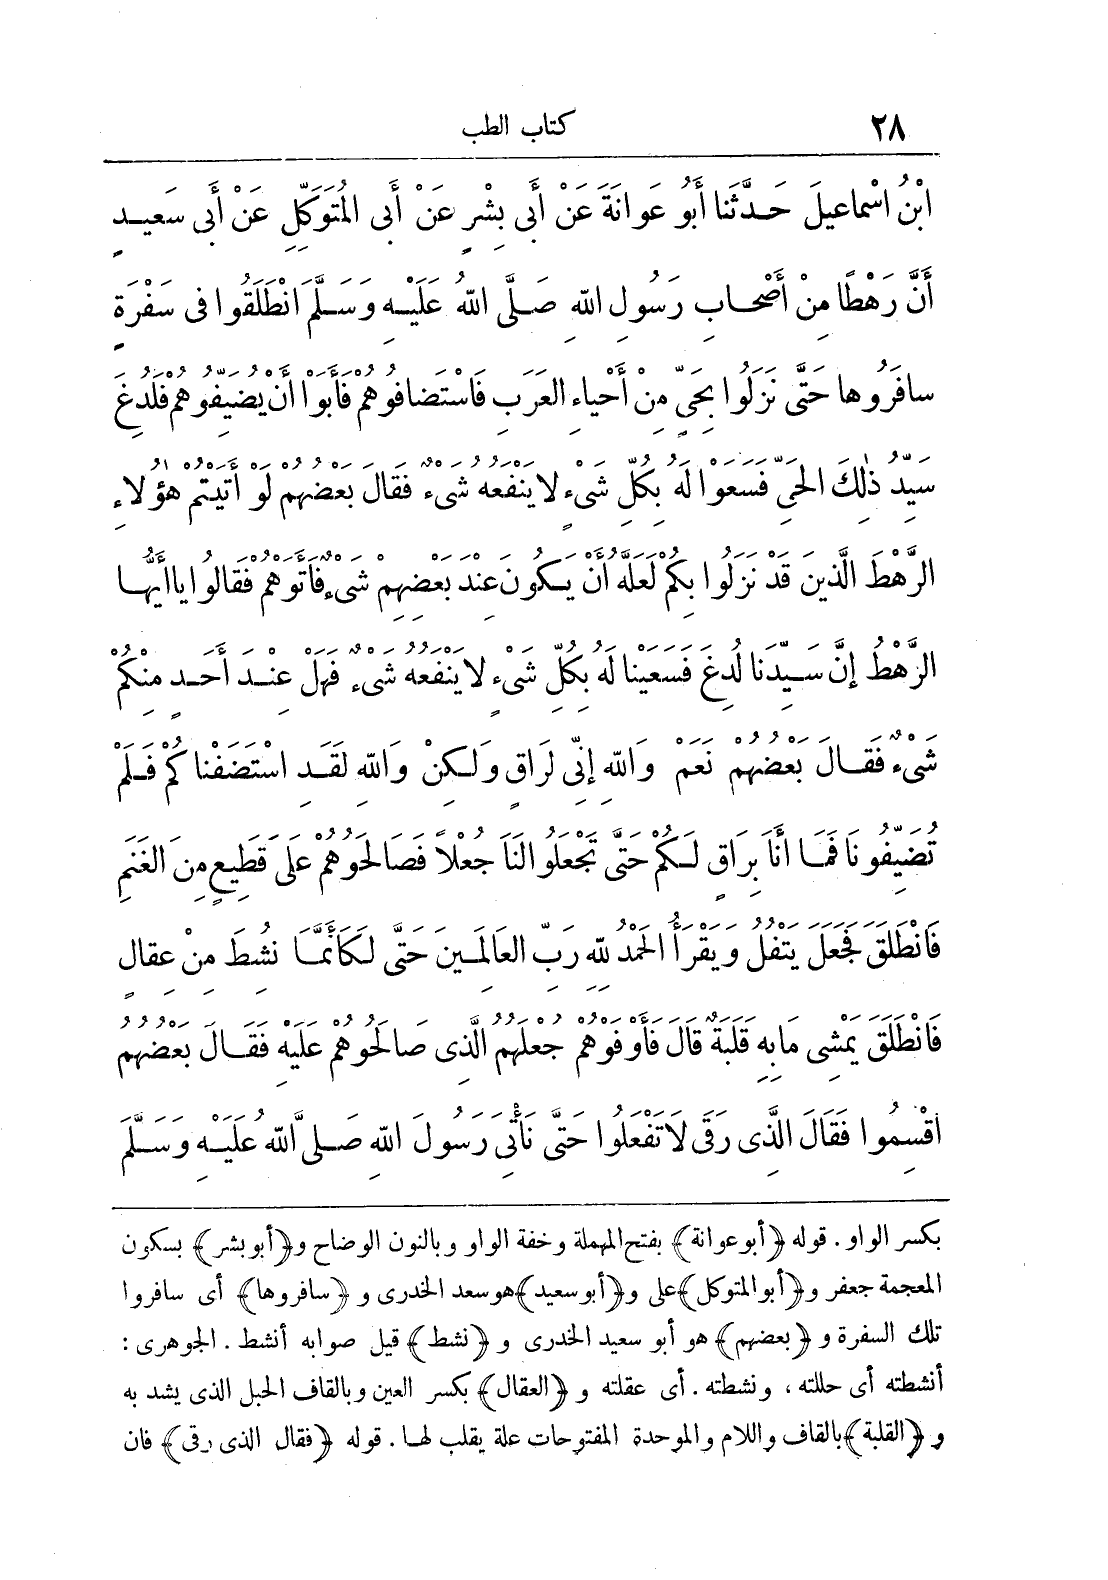 ٢٨ كتاب الطب
ابْنُ اسْماعيلَ حَدَّثَنا أَبُو عَوانَةَ عَنْ أَبى بِشْرٍ عَنْ أَبى المُتَوَكِّلِ عَنْ أَبى سَعيدٍ
أَنَّ رَهْطًا مِنْ أَصْحابِ رَسُولِ اللهِ صَلَّى اللهُ عَلَيْهِ وَسَلَّمَ انْطَلَقُوا فى سَفْرَةٍ
سافَرُوها حَتَّى نَزَلُوا بِحَىٍّ مِنْ أَحْياءِ العَرَبِ فَاسْتَضافُوهُمْ فَأَبَوْا أَنْ يُضَيِّفُوهُمْ فَلُدِغَ
سَيِّدُ ذٰلِكَ الحَىِّ فَسَعَوْا لَهُ بِكُلِّ شَىْءٍ لا يَنْفَعُهُ شَىْءٌ فَقالَ بَعْضُهُمْ لَوْ أَتَيْتُمْ هٰؤُلاءِ
الرَّهْطَ الَّذينَ قَدْ نَزَلُوا بِكُمْ لَعَلَّهُ أَنْ يَكُونَ عِنْدَ بَعْضِهِمْ شَىْءٌ فَأَتَوْهُمْ فَقالُوا ياأَيُّها
الرَّهْطُ إِنَّ سَيِّدَنا لُدِغَ فَسَعَيْنا لَهُ بِكُلِّ شَىْءٍ لا يَنْفَعُهُ شَىْءٌ فَهَلْ عِنْدَ أَحَدٍ مِنْكُمْ
شَىْءٌ فَقالَ بَعْضُهُمْ نَعَمْ وَاللهِ إِنِّى لَرَاقٍ وَلَكِنْ وَاللهِ لَقَدِ اسْتَضَفْناكُمْ فَلَمْ
تُضَيِّفُونَا فَمَا أَنَا بِرَاقٍ لَكُمْ حَتَّى تَجْعَلُوا لَنَا جُعْلاً فَصَالَحُوهُمْ عَلَى قَطِيعٍ مِنَ الغَنَمِ
فَانْطَلَقَ فَجَعَلَ يَتْفُلُ وَيَقْرَأُ الحَمْدُ لِلّهِ رَبِّ العَالَمِينَ حَتَّى لَكَأَنَّمَا نُشِطَ مِنْ عِقالٍ
فَانْطَلَقَ يَمْشِى مَا بِهِ قَلَبَةٌ قَالَ فَأَوْفَوْهُمْ جُعْلَهُمُ الَّذِى صَالَحُوهُمْ عَلَيْهِ فَقَالَ بَعْضُهُمُ
اقْسِمُوا فَقَالَ الَّذِى رَقَى لَا تَفْعَلُوا حَتَّى نَأْتِىَ رَسُولَ اللهِ صَلَّى اللهُ عَلَيْهِ وَسَلَّمَ
بكسر الواو . قوله ﴿أبو عوانة﴾ بفتح المهملة وخفة الواو وبالنون الوضاح و﴿أبو بشر﴾ بسكون
المعجمة جعفر و﴿أبو المتوكل﴾ على و﴿أبو سعيد﴾ هو سعد الخدرى و﴿سافروها﴾ أى سافروا
تلك السفرة و﴿بعضهم﴾ هو أبو سعيد الخدرى و﴿نشط﴾ قيل صوابه أنشط . الجوهرى :
أنشطته أى حللته ، ونشطته . أى عقلته و﴿العقال﴾ بكسر العين وبالقاف الحبل الذى يشد به
و﴿القلبة﴾ بالقاف واللام والموحدة المفتوحات علة يقلب لها . قوله ﴿فقال الذى رقى﴾ فان